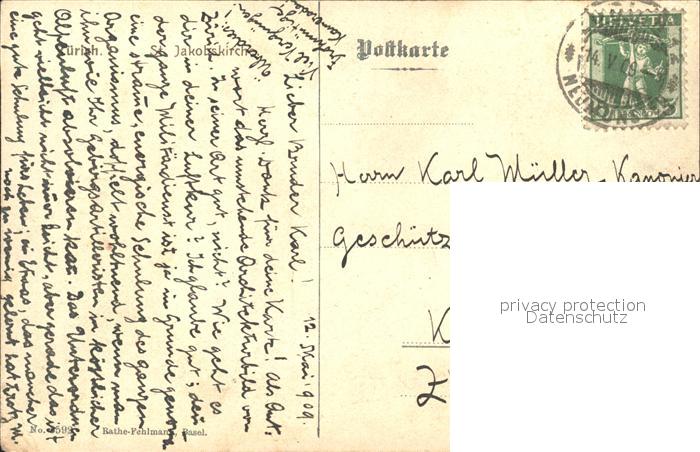 Zürich. St. Jakobskirche
Postkarte
HELVETIA
14. V. 09
Herrn Karl Müller, Kanonier
Geschütz
K
Z
privacy protection
Datenschutz
12. Mai 1909.
Lieber Bruder Karl!
Herzl. Dank für deine Karte! Als Ant-
wort das umstehende Architekturbild von
Zürich. In seiner Art gut, nicht? Wie geht es
dir in deiner Luftkur? Ich glaube gut; denn
der ganze Militärdienst ist ja im Grunde genom
eine straue, energische Schulung des ganzen
Organismus, doppelt wohltuend, wenn man
ihn wie Ihr Gebirgsartilleristen in köstlicher
Alpenluft absolvieren kan. Das Unterordnen
geht vielleicht nicht immer leicht, aber gerade das ist
eine gute Schulung fürs Leben; ein Etwas, das mancher
noch zu wenig gelernt hat
Viel Vergnügen!
No. 3592 Rathe-Fehlmann, Basel.